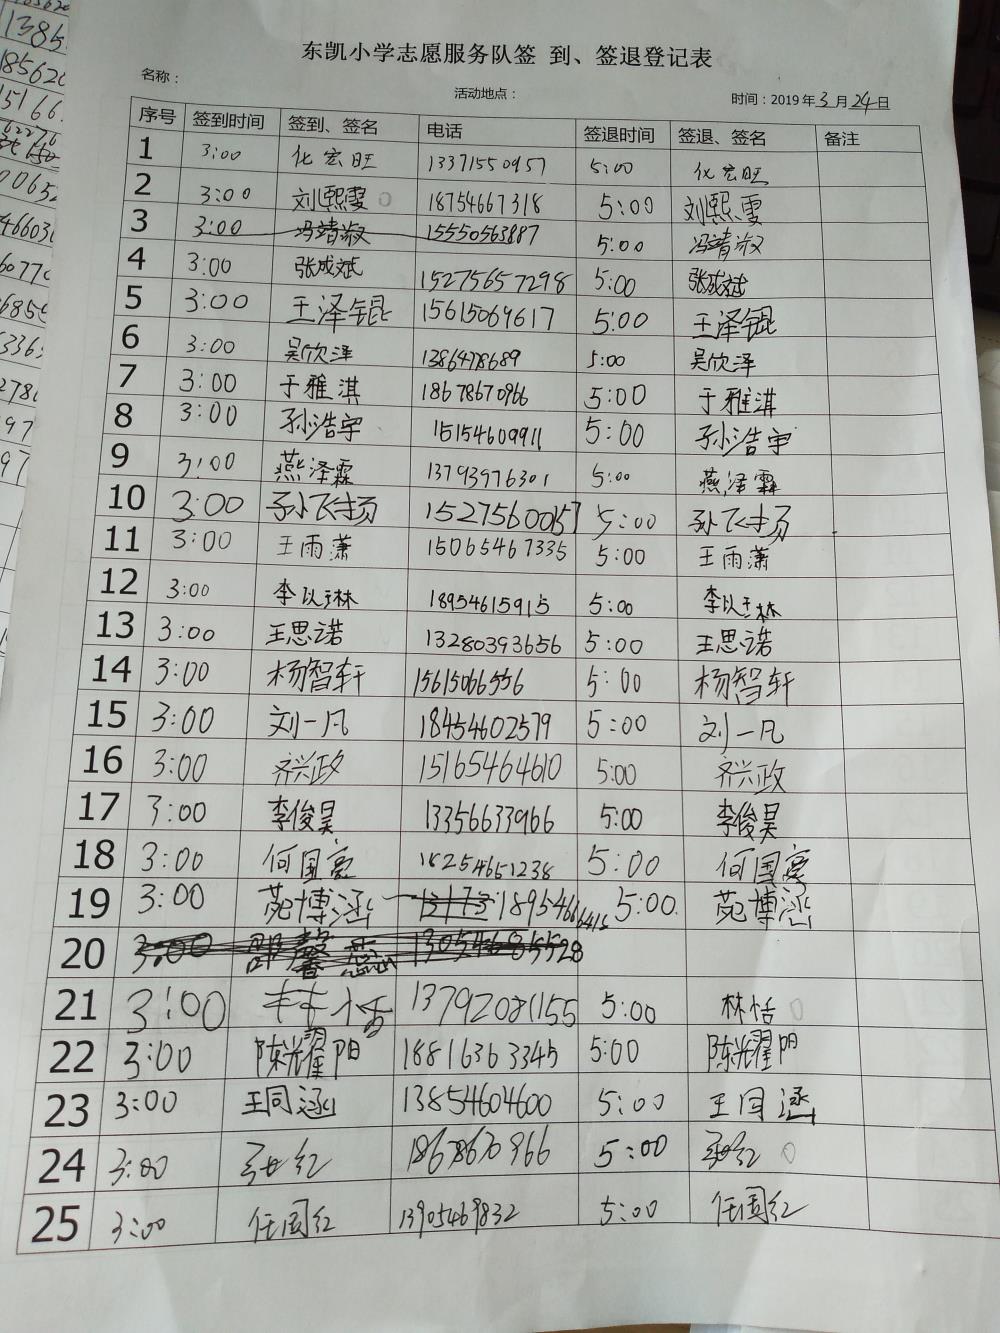 东凯小学志愿服务队签 到、签退登记表
名称： 活动地点： 时间：2019年3月24日
序号 签到时间 签到、签名 电话 签退时间 签退、签名 备注
1 3:00 化宏旺 13371550957 5:00 化宏旺
2 3:00 刘熙雯 18754667318 5:00 刘熙雯
3 3:00 冯靖淑 15550563887 5:00 冯靖淑
4 3:00 张成斌 15275657298 5:00 张成斌
5 3:00 王泽锟 15615069617 5:00 王泽锟
6 3:00 吴欣泽 1386478689 5:00 吴欣泽
7 3:00 于雅淇 18678670966 5:00 于雅淇
8 3:00 孙浩宇 15154609911 5:00 孙浩宇
9 3:00 燕泽霖 13793976301 5:00 燕泽霖
10 3:00 孙飞扬 15275600157 5:00 孙飞扬
11 3:00 王雨潇 15065467335 5:00 王雨潇
12 3:00 李以琳 18954615915 5:00 李以琳
13 3:00 王思诺 13280393656 5:00 王思诺
14 3:00 杨智轩 15615066556 5:00 杨智轩
15 3:00 刘一凡 18454602579 5:00 刘一凡
16 3:00 齐兴政 15165464610 5:00 齐兴政
17 3:00 李俊昊 13356633966 5:00 李俊昊
18 3:00 何国亮 18254651238 5:00 何国亮
19 3:00 苑博涵 18954666415 5:00 苑博涵
20 3:00
21 3:00 林恬 13792081155 5:00 林恬
22 3:00 陈光耀阳 18816363345 5:00 陈光耀阳
23 3:00 王同涵 13854604600 5:00 王同涵
24 3:00 18678670966 5:00
25 3:00 任国红 13905469832 5:00 任国红